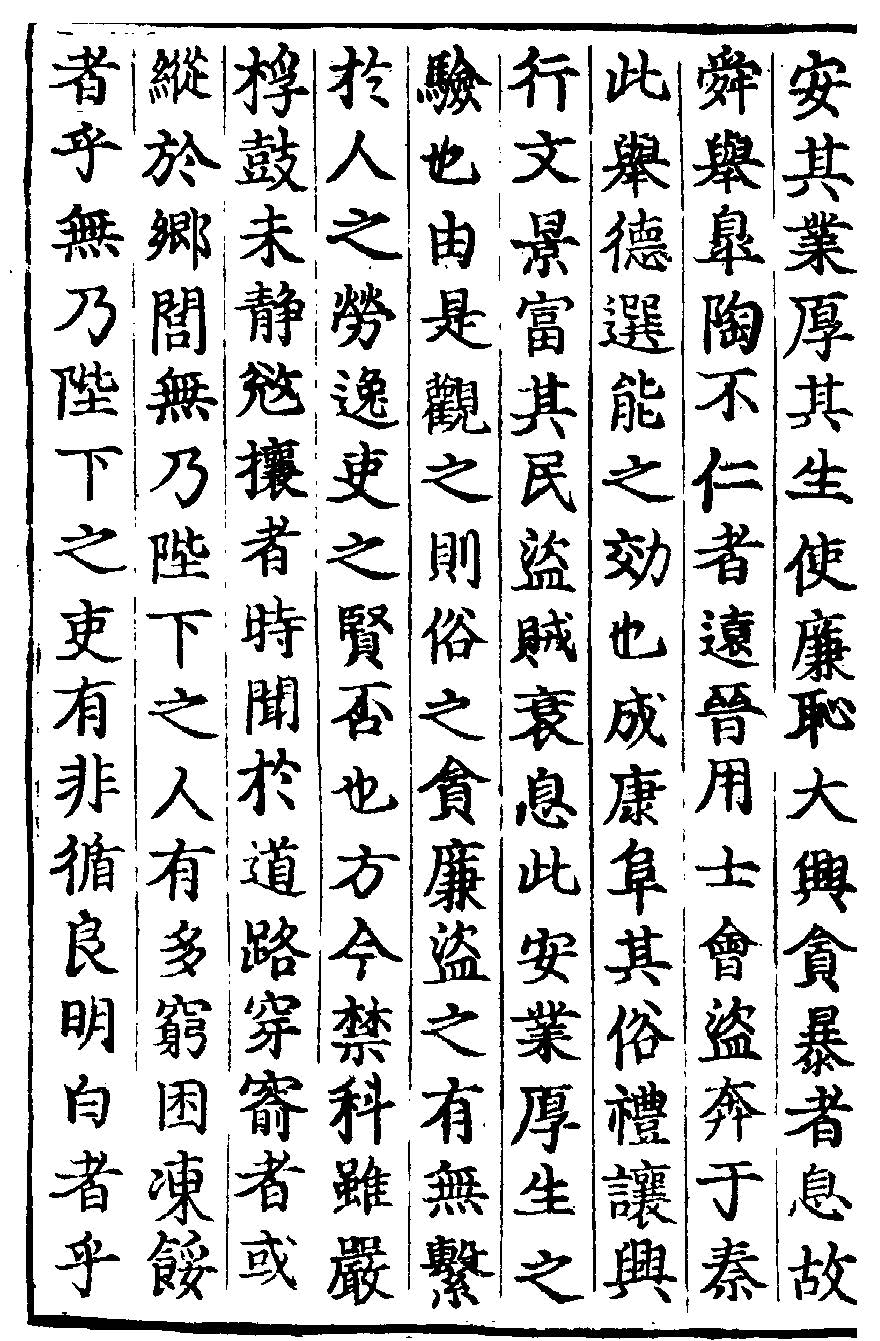 安其業厚其生使廉恥大興貪暴者息故
舜舉臯陶不仁者遠晉用士會盜奔于秦
此舉德選能之効也成康阜其俗禮讓興
行文景富其民盜賊衰息此安業厚生之
驗也由是觀之則俗之貪廉盜之有無繫
於人之勞逸吏之賢否也方今禁科雖嚴
桴鼓未静愍攘者時聞於道路穿窬者或
縱於鄉閭無乃陛下之人有多窮困凍餒
者乎無乃陛下之吏有非循良明白者乎